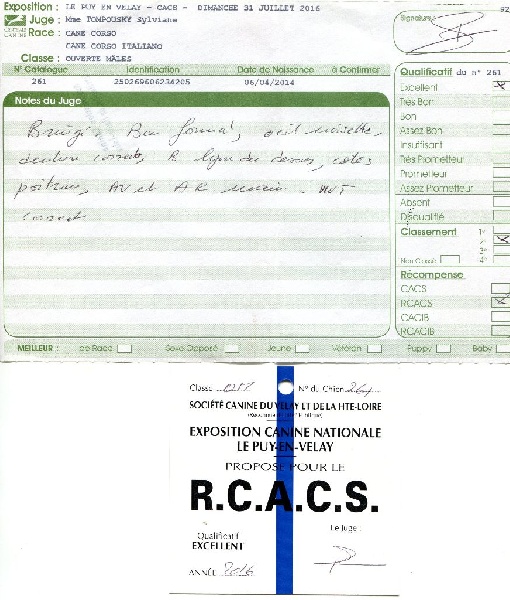 Exposition : LE PUY EN VELAY - CACS - DIMANCHE 31 JUILLET 2016
Juge : Mme TOMPOUSKY Sylviane
Race : CANE CORSO
CANE CORSO ITALIANO
Classe : OUVERTE MÂLES
Signature
N° Catalogue Identification Date de Naissance à Confirmer
261 250269606236205 06/04/2014
Notes du Juge
Bringé Bon format, œil noisette,
denture correcte, ligne du dessus, côtes,
poitrine, AV et AR
correct
Qualificatif du n° 261
Excellent
Très Bon
Bon
Assez Bon
Insuffisant
Très Prometteur
Prometteur
Assez Prometteur
Absent
Disqualifié
Classement 1er
2e
3e
Non Classé 4e
Récompense
CACS
RCACS
CACIB
RCACIB
MEILLEUR : de Race Sexe Opposé Jeune Vétéran Puppy Baby
Classe N° du Chien 261
SOCIÉTÉ CANINE DU VELAY ET DE LA HTE-LOIRE
EXPOSITION CANINE NATIONALE
LE PUY-EN-VELAY
PROPOSÉ POUR LE
R.C.A.C.S.
Qualificatif
EXCELLENT
Le Juge :
ANNÉE 2016